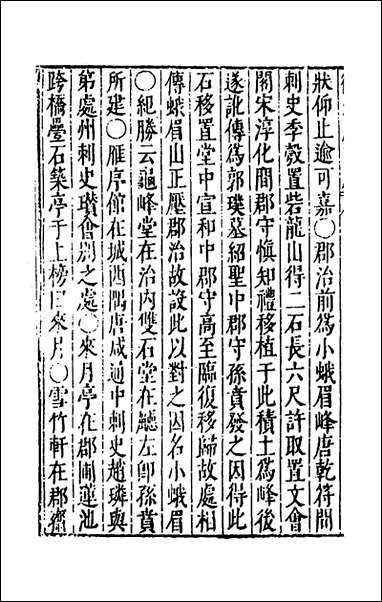 狀仰止逾可嘉〇郡治前爲小蛾眉峰唐乾符間
刺史季㲄置砦龍山得二石長六尺許取置文會
閣宋淳化間郡守愼知禮移植于此積土爲峰後
遂訛傳爲郭璞墓紹聖中郡守孫賁發之因得此
石移置堂中宣和中郡守高至臨復移歸故處相
傳蛾眉山正壓郡治故設此以對之因名小蛾眉
〇紀勝云龜峰堂在治内雙石堂在廳左卽孫賁
所建〇雁亭館在城西隅唐咸通中刺史趙璘與
第處州刺史瓚會別之處〇來月亭在郡圃蓮池
跨橋壘石築亭于上榜曰來月〇雪竹軒在郡齋